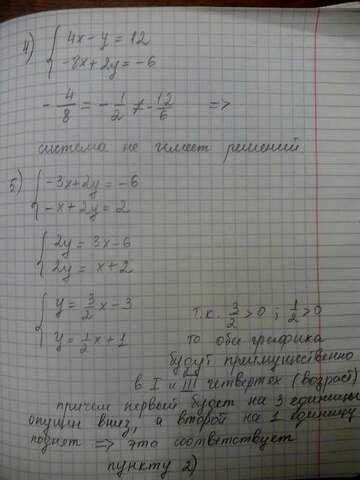 4) { 4x - y = 12
-8x + 2y = -6
- 4/8 = - 1/2 ≠ - 12/6 =>
система не имеет решений
5) { -3x + 2y = -6
-x + 2y = 2
{ 2y = 3x - 6
2y = x + 2
{ y = 3/2 x - 3
y = 1/2 x + 1
т.к. 3/2 > 0 ; 1/2 > 0
то оба графика
будут преимущественно
в I и III четвертях (возраст)
причем первый будет на 3 единицы
опущен вниз, а второй на 1 единицу
поднят => это соответствует
пункту 2)